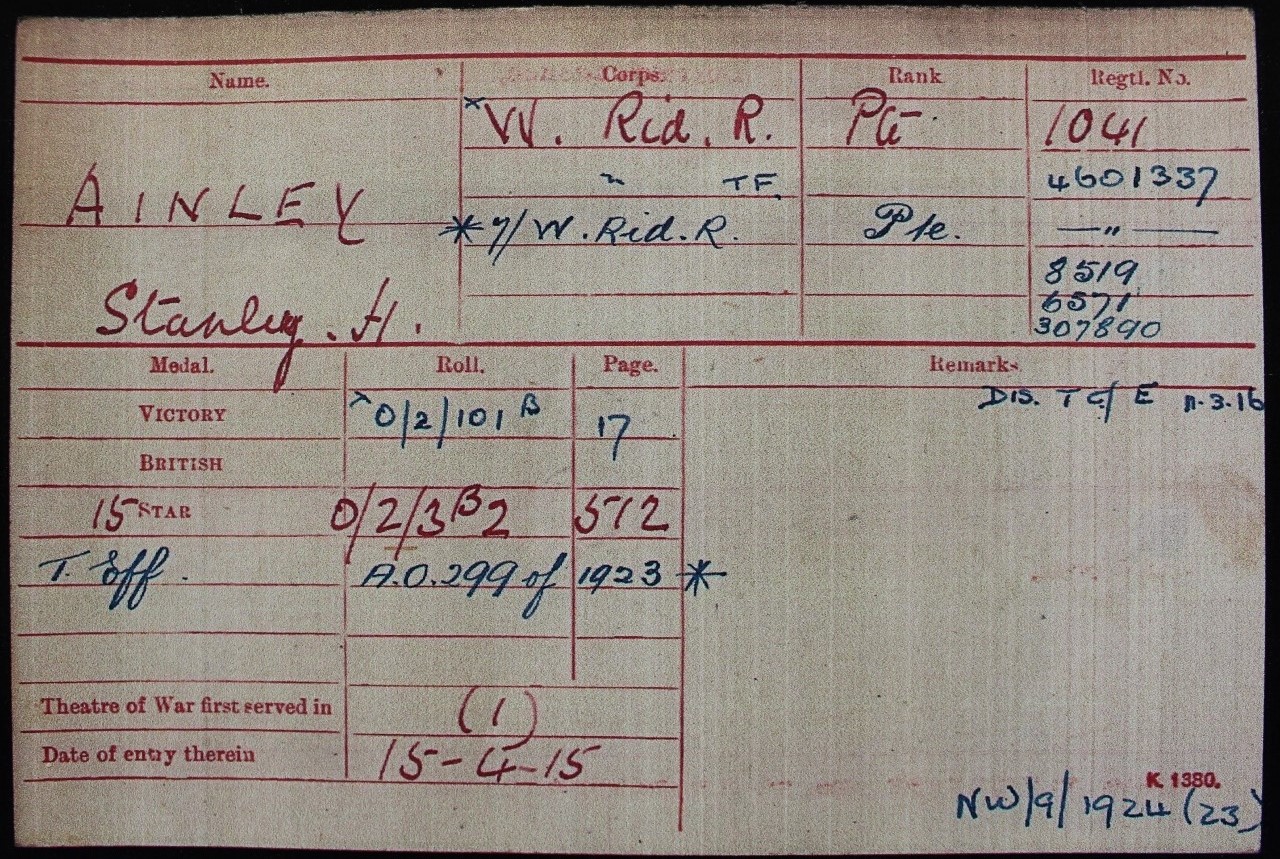 Name. Corps. Rank Regtl. No.
AINLEY
Stanley. H.
× W. Rid. R. Pte 1041
" TF. 4601337
* 7/W. Rid. R. Pte. —"—
8519
6571
307890
Medal. Roll. Page. Remarks
VICTORY O/2/101 B 17
BRITISH
15 STAR O/2/3 B 2 512
T. Eff. A.O. 299 of 1923 *
DIS. T of E 11.3.16
Theatre of War first served in (1)
Date of entry therein 15-4-15
K 1380.
NW/9/1924 (23)